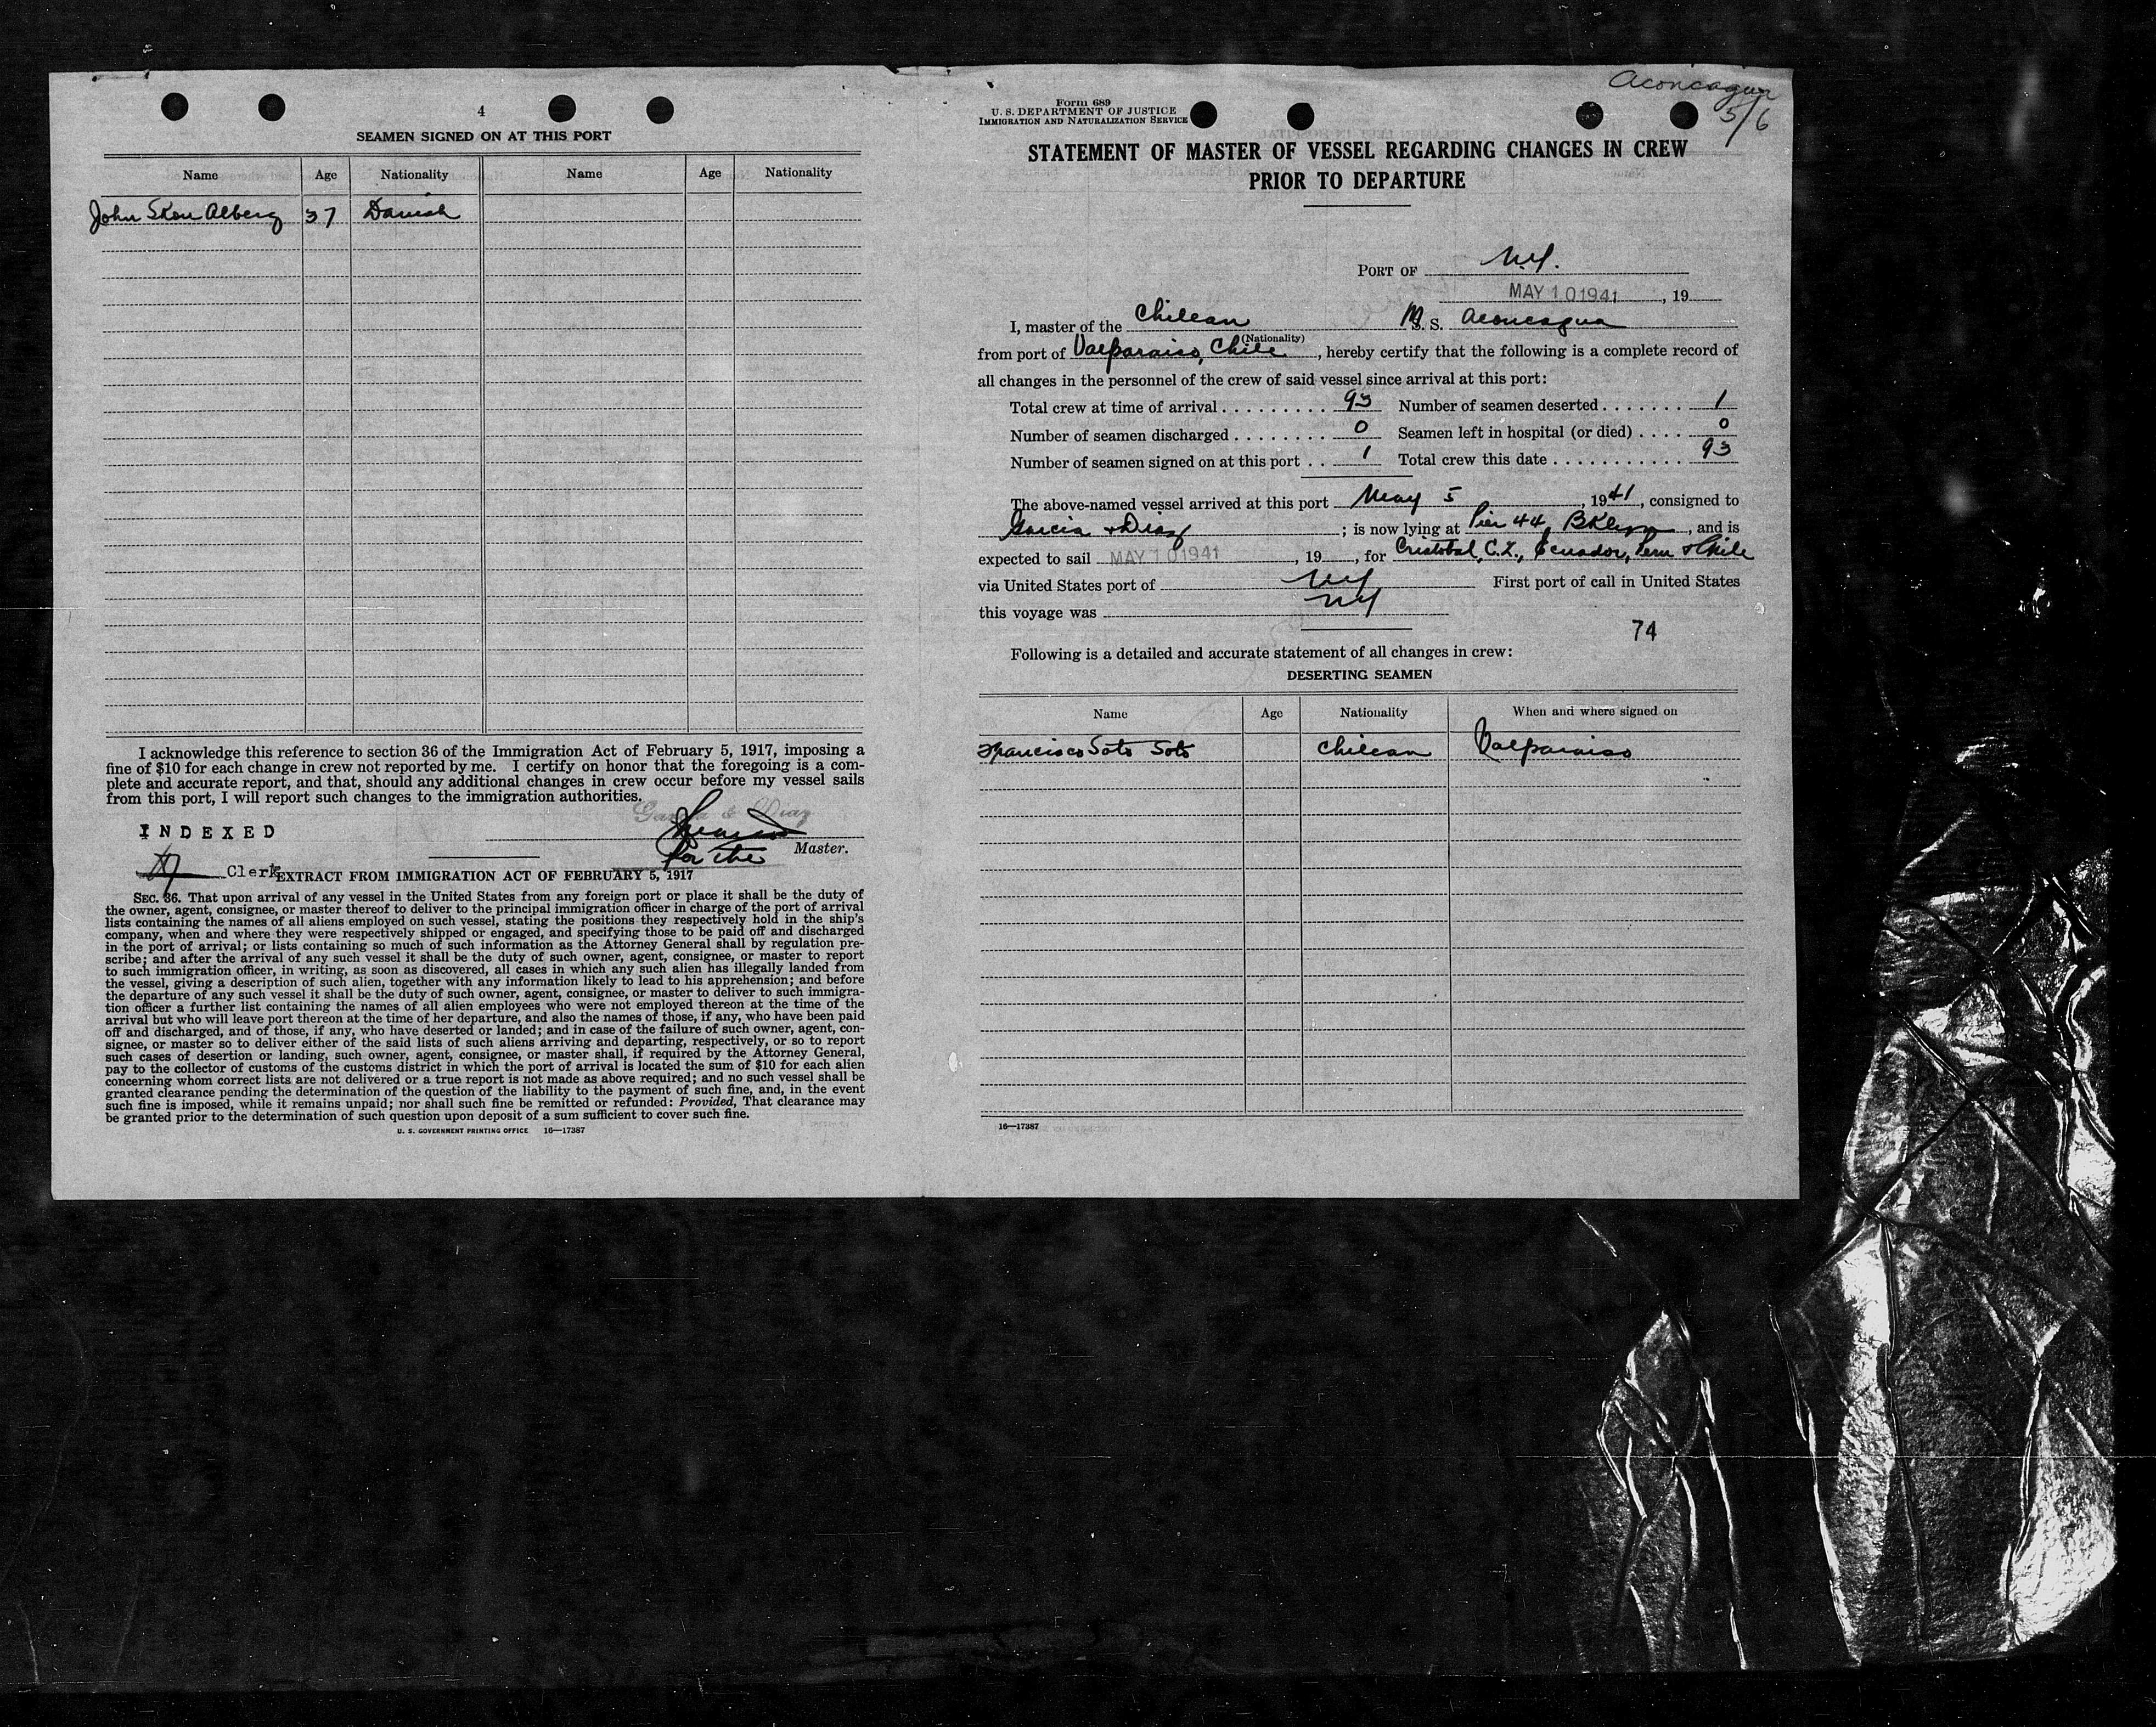 4
SEAMEN SIGNED ON AT THIS PORT
Name Age Nationality Name Age Nationality
John Skou Alberg 37 Danish
I acknowledge this reference to section 36 of the Immigration Act of February 5, 1917, imposing a
fine of $10 for each change in crew not reported by me. I certify on honor that the foregoing is a com-
plete and accurate report, and that, should any additional changes in crew occur before my vessel sails
from this port, I will report such changes to the immigration authorities.
Garcia & Diaz
INDEXED
For the Master.
Clerk
EXTRACT FROM IMMIGRATION ACT OF FEBRUARY 5, 1917
SEC. 36. That upon arrival of any vessel in the United States from any foreign port or place it shall be the duty of
the owner, agent, consignee, or master thereof to deliver to the principal immigration officer in charge of the port of arrival
lists containing the names of all aliens employed on such vessel, stating the positions they respectively hold in the ship's
company, when and where they were respectively shipped or engaged, and specifying those to be paid off and discharged
in the port of arrival; or lists containing so much of such information as the Attorney General shall by regulation pre-
scribe; and after the arrival of any such vessel it shall be the duty of such owner, agent, consignee, or master to report
to such immigration officer, in writing, as soon as discovered, all cases in which any such alien has illegally landed from
the vessel, giving a description of such alien, together with any information likely to lead to his apprehension; and before
the departure of any such vessel it shall be the duty of such owner, agent, consignee, or master to deliver to such immigra-
tion officer a further list containing the names of all alien employees who were not employed thereon at the time of the
arrival but who will leave port thereon at the time of her departure, and also the names of those, if any, who have been paid
off and discharged, and of those, if any, who have deserted or landed; and in case of the failure of such owner, agent, con-
signee, or master so to deliver either of the said lists of such aliens arriving and departing, respectively, or so to report
such cases of desertion or landing, such owner, agent, consignee, or master shall, if required by the Attorney General,
pay to the collector of customs of the customs district in which the port of arrival is located the sum of $10 for each alien
concerning whom correct lists are not delivered or a true report is not made as above required; and no such vessel shall be
granted clearance pending the determination of the question of the liability to the payment of such fine, and, in the event
such fine is imposed, while it remains unpaid; nor shall such fine be remitted or refunded: Provided, That clearance may
be granted prior to the determination of such question upon deposit of a sum sufficient to cover such fine.
U. S. GOVERNMENT PRINTING OFFICE 16—17387
Aconcagua
5/6
Form 689
U. S. DEPARTMENT OF JUSTICE
IMMIGRATION AND NATURALIZATION SERVICE
STATEMENT OF MASTER OF VESSEL REGARDING CHANGES IN CREW
PRIOR TO DEPARTURE
PORT OF N.Y.
MAY 10 1941, 19
I, master of the Chilean M. S. Aconcagua
(Nationality)
from port of Valparaiso, Chile, hereby certify that the following is a complete record of
all changes in the personnel of the crew of said vessel since arrival at this port:
Total crew at time of arrival 93 Number of seamen deserted 1
Number of seamen discharged 0 Seamen left in hospital (or died) 0
Number of seamen signed on at this port 1 Total crew this date 93
The above-named vessel arrived at this port May 5, 1941, consigned to
Garcia & Diaz; is now lying at Pier 44, BKlyn, and is
expected to sail MAY 10 1941, 19, for Cristobal, C.Z., Ecuador, Peru & Chile
via United States port of NY First port of call in United States
this voyage was NY
74
Following is a detailed and accurate statement of all changes in crew:
DESERTING SEAMEN
Name Age Nationality When and where signed on
Francisco Soto Soto Chilean Valparaiso
16—17387